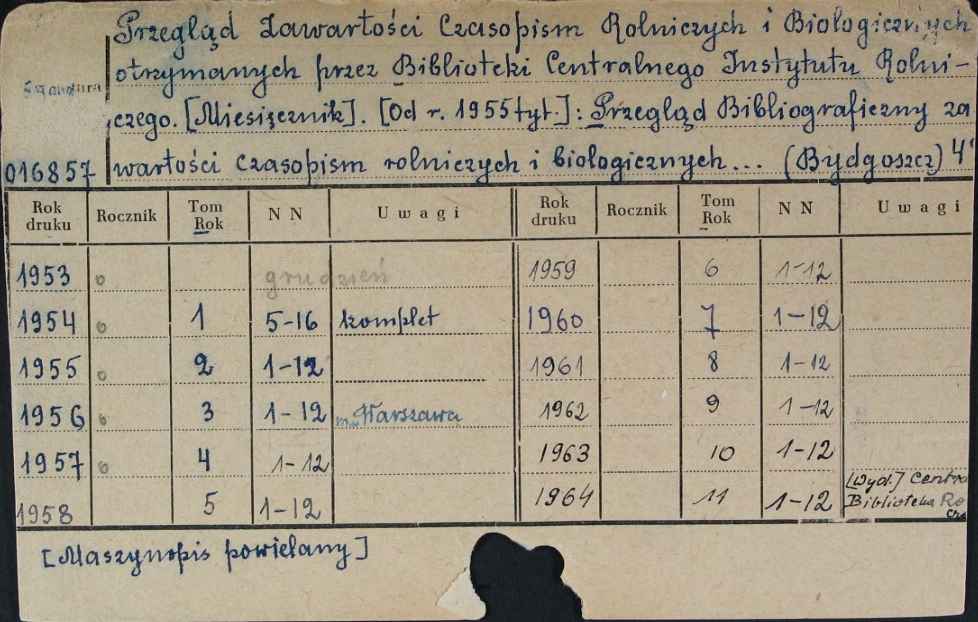 Przegląd Zawartości Czasopism Rolniczych i Biologicznych
otrzymanych przez Biblioteki Centralnego Instytutu Rolni-
Sygnatura
czego. [Miesięcznik]. [Od r. 1955 tyt.]: Przegląd Bibliograficzny za
016857 wartości czasopism rolniczych i biologicznych... (Bydgoszcz) 4°
Rok druku Rocznik Tom Rok N N Uwagi Rok druku Rocznik Tom Rok N N Uwagi
1953 o grudzień 1959 6 1-12
1954 o 1 5-16 komplet 1960 7 1-12
1955 o 2 1-12 1961 8 1-12
1956 o 3 1-12 Warszawa 1962 9 1-12
1957 o 4 1-12 1963 10 1-12
1958 5 1-12 1964 11 1-12 [Wyd.] Centra
Biblioteka Ro
[Maszynopis powielany]